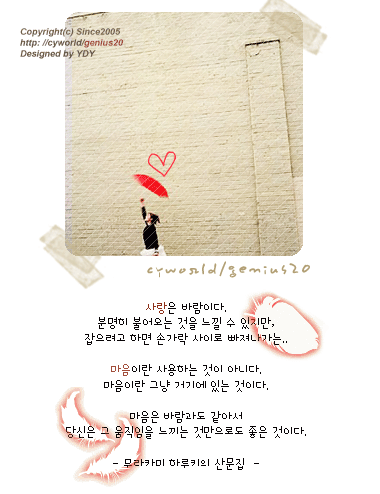 Copyright(c) Since2005
http: //cyworld/genius20
Designed by YDY
cyworld/genius20
사랑은 바람이다.
분명히 불어오는 것을 느낄 수 있지만,
잡으려고 하면 손가락 사이로 빠져나가는..
마음이란 사용하는 것이 아니다.
마음이란 그냥 거기에 있는 것이다.
마음은 바람과도 같아서
당신은 그 움직임을 느끼는 것만으로도 좋은 것이다.
- 무라카미 하루키의 산문집 -